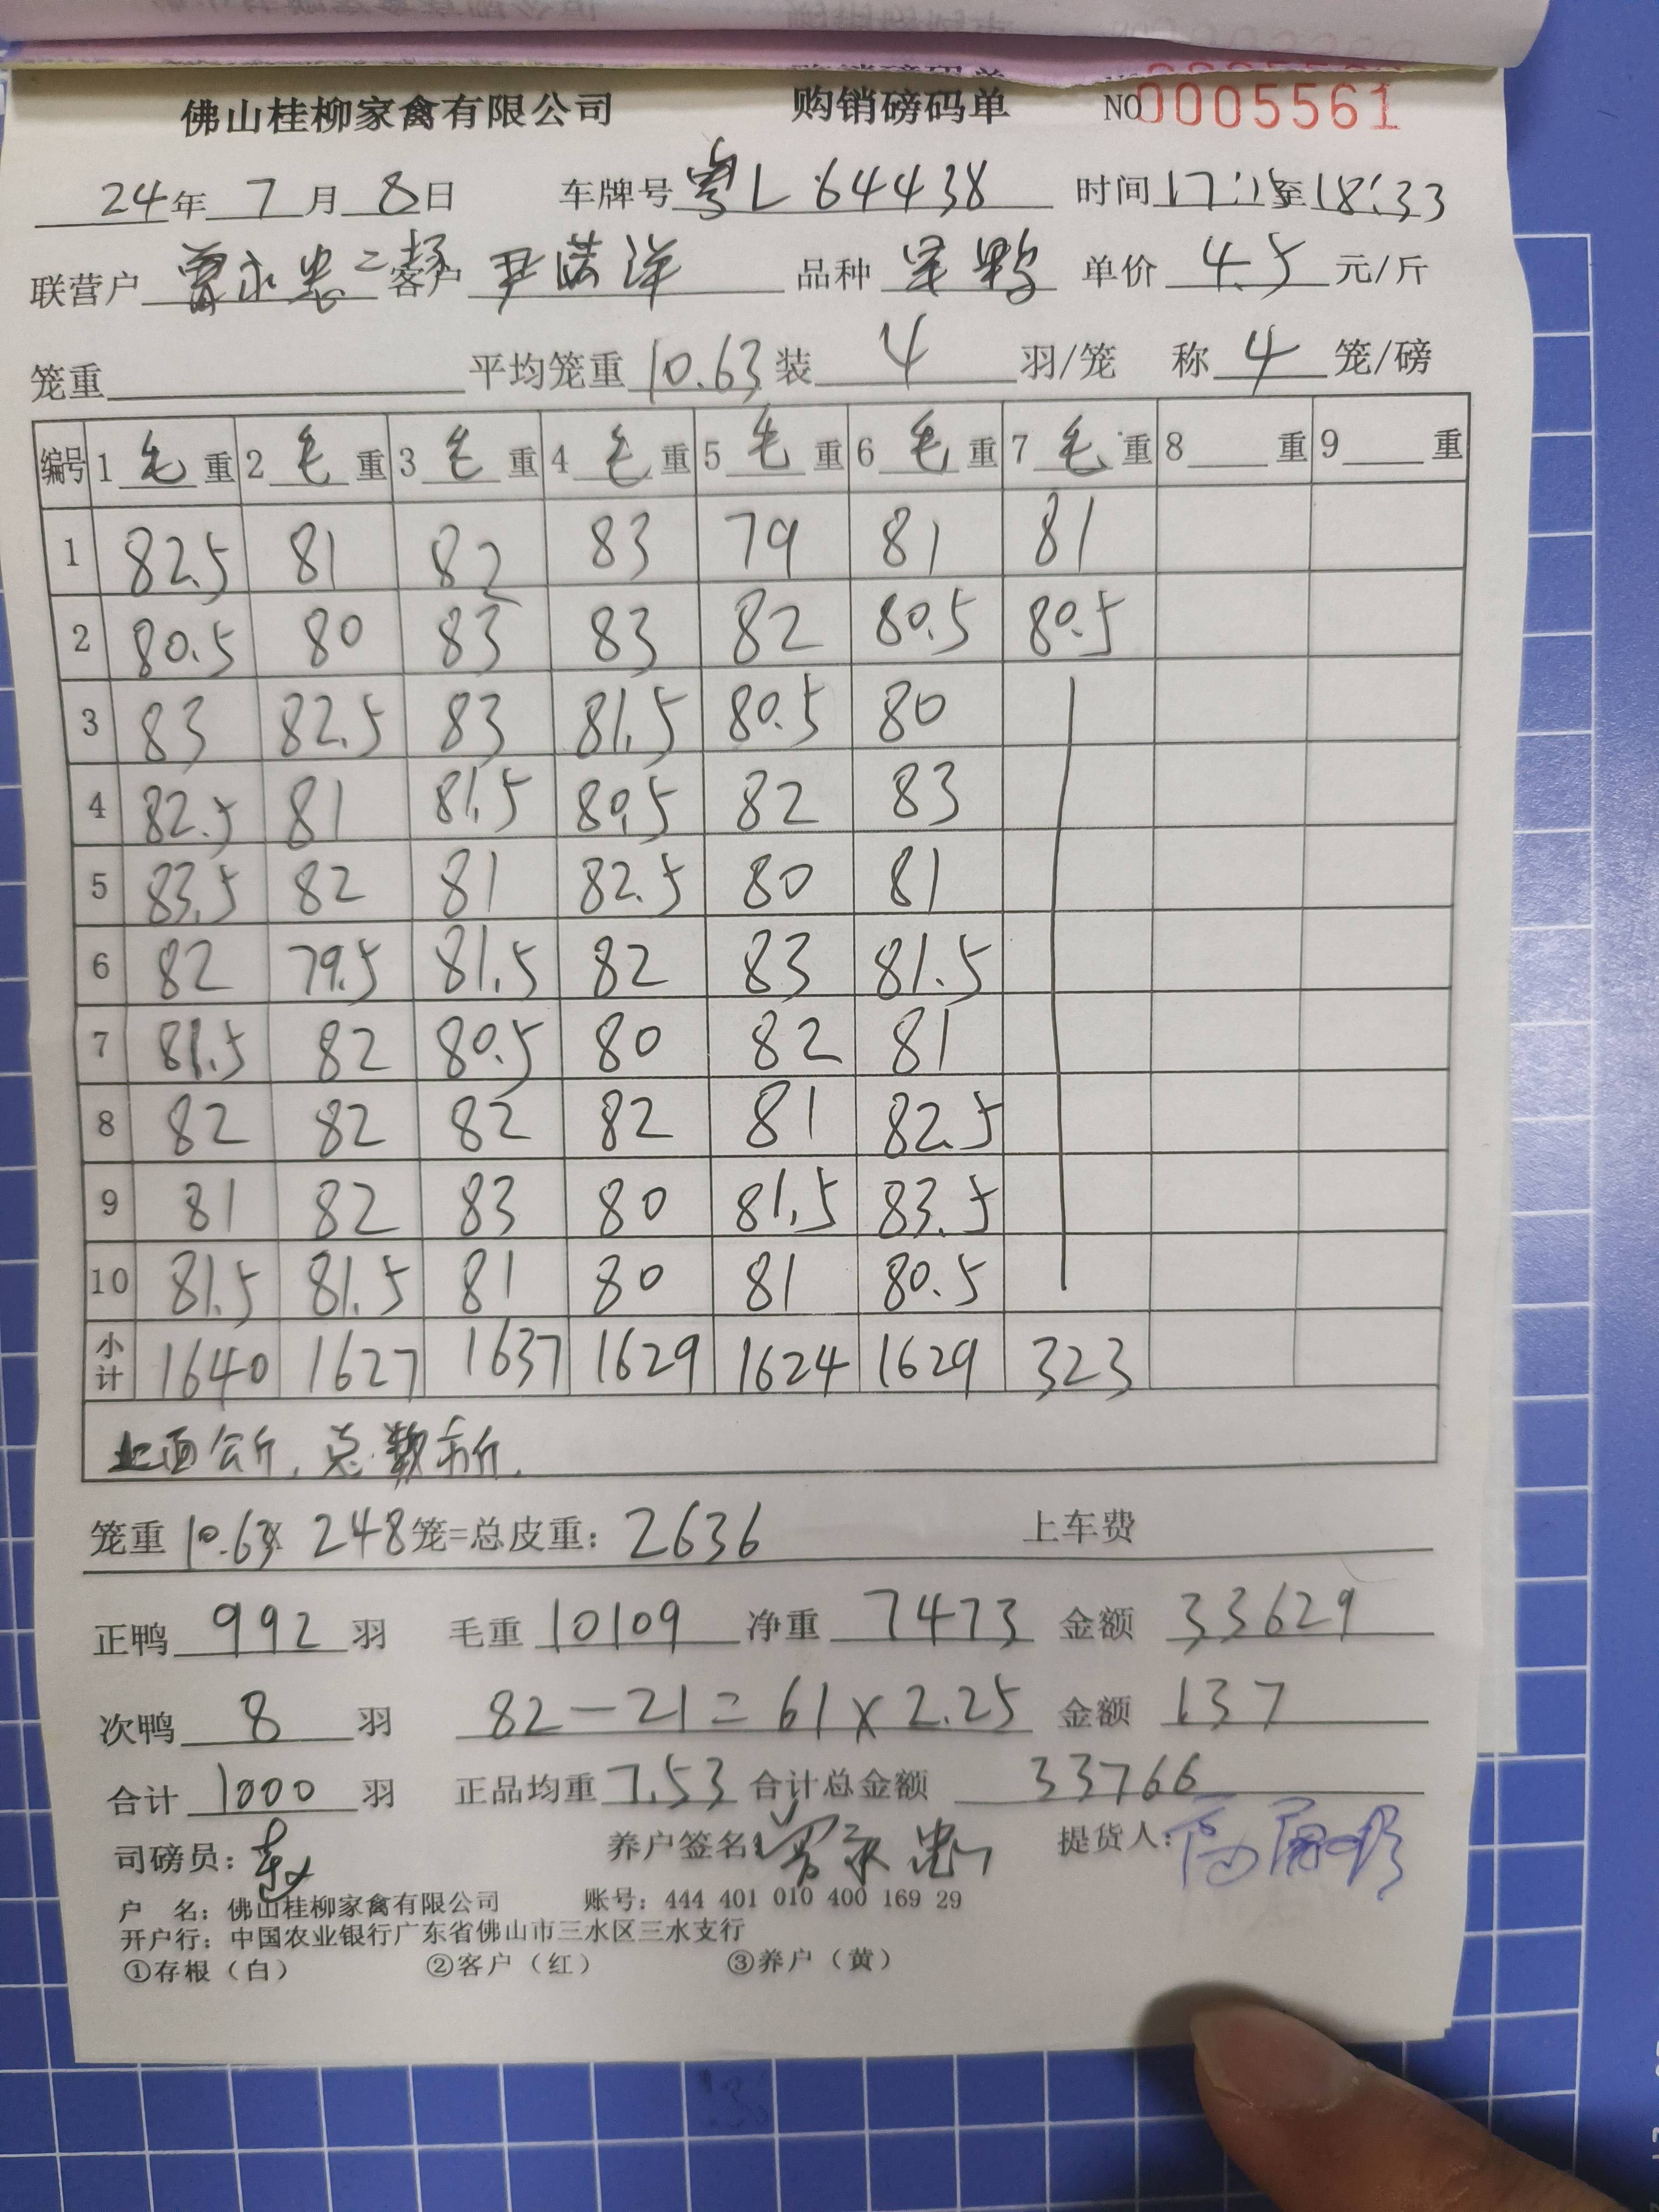 佛山桂柳家禽有限公司 购销磅码单 NO0005561
24年7月8日 车牌号粤L 64438 时间17:15至18:33
联营户 永忠二场 客户 尹 洋 品种 单价 4.5 元/斤
笼重 平均笼重10.63装 4 羽/笼 称 4 笼/磅
编号 1毛重 2毛重 3毛重 4毛重 5毛重 6毛重 7毛重 8 重 9 重
1 82.5 81 82 83 79 81 81
2 80.5 80 83 83 82 80.5 80.5
3 83 82.5 83 81.5 80.5 80
4 82.5 81 81.5 80.5 82 83
5 83.5 82 81 82.5 80 81
6 82 79.5 81.5 82 83 81.5
7 81.5 82 80.5 80 82 81
8 82 82 82 82 81 82.5
9 81 82 83 80 81.5 83.5
10 81.5 81.5 81 80 81 80.5
小计 1640 1627 1637 1629 1624 1629 323
上面公斤,总数市斤.
笼重10.63X 248笼=总皮重:2636 上车费
正鸭 992 羽 毛重 10109 净重 7473 金额 33629
次鸭 8 羽 82-21=61×2.25 金额 137
合计 1000 羽 正品均重7.53 合计总金额 33766
司磅员: 养户签名: 提货人:
户 名:佛山桂柳家禽有限公司 账号:444 401 010 400 169 29
开户行:中国农业银行广东省佛山市三水区三水支行
①存根(白) ②客户(红) ③养户(黄)